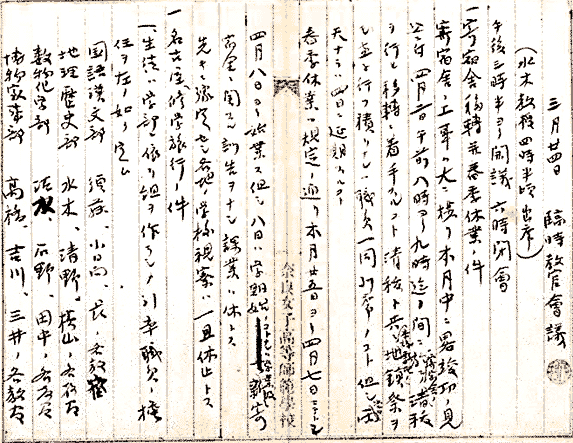 三月廿四日 臨時教官會議
(水木教授四時半頃出席)
午後三時半ヨリ開議 六時閉會
一、寄宿舎移轉並春季休業ノ件
寄宿舎ノ工事ハ大ニ捗リ本月中ニ畧竣功ノ見
込ニ付 四月二日午前八時ヨリ九時迄ノ間ニ 清秡
ヲ行ヒ移轉ニ着手スルコト 清秡ト共ニ地鎮祭ヲ
モ並ニ行フ積リナレハ職員一同列席ノコト 但シ雨
天ナラハ四日ニ延期スルコト
春季休業ハ規定ノ通リ本月廿五日ヨリ四月七日ニ至ル
四月八日ヨリ始業ス但シ八日ハ学期始
寄宿舎ニ関スル訓告ヲナシ課業ハ休トス
一、名古屋修学旅行ノ件
先キニ豫定セシ各地ノ学校視察ハ一旦休止トス
一、生徒ハ学部ニ依リ組ヲ作ラシメ引率職員ノ擔
任ヲ左ノ如ク定ム
国語漢文部 須藤、小日向、長ノ各教官
地理歴史部 水木、清野、横山ノ各教官
数物化学部 石野、田中ノ各教官
博物家事部 髙橋、吉川、三井ノ各教官
奈良女子高等師範學校